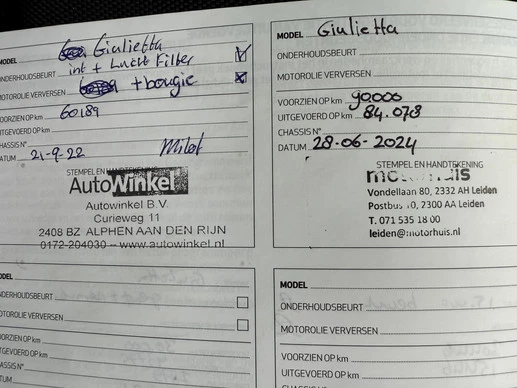 MODEL Giulietta
int + Lucht Filter
ONDERHOUDSBEURT
MOTOROLIE VERVERSEN + bougie
VOORZIEN OP km 60189
UITGEVOERD OP km
CHASSIS N°
DATUM 21-9-22
STEMPEL EN HANDTEKENING
AutoWinkel
Autowinkel B.V.
Curieweg 11
2408 BZ ALPHEN AAN DEN RIJN
0172-204030 - www.autowinkel.nl
MODEL Giulietta
ONDERHOUDSBEURT
MOTOROLIE VERVERSEN
VOORZIEN OP km 90.000
UITGEVOERD OP km 84.078
CHASSIS N°
DATUM 28-06-2024
STEMPEL EN HANDTEKENING
Vondellaan 80, 2332 AH Leiden
Postbus 10, 2300 AA Leiden
T. 071 535 18 00
leiden@motorhuis.nl
MODEL
ONDERHOUDSBEURT
MOTOROLIE VERVERSEN
VOORZIEN OP km
UITGEVOERD OP km
CHASSIS N°
DATUM
MODEL
ONDERHOUDSBEURT
MOTOROLIE VERVERSEN
VOORZIEN OP km
UITGEVOERD OP km
CHASSIS N°